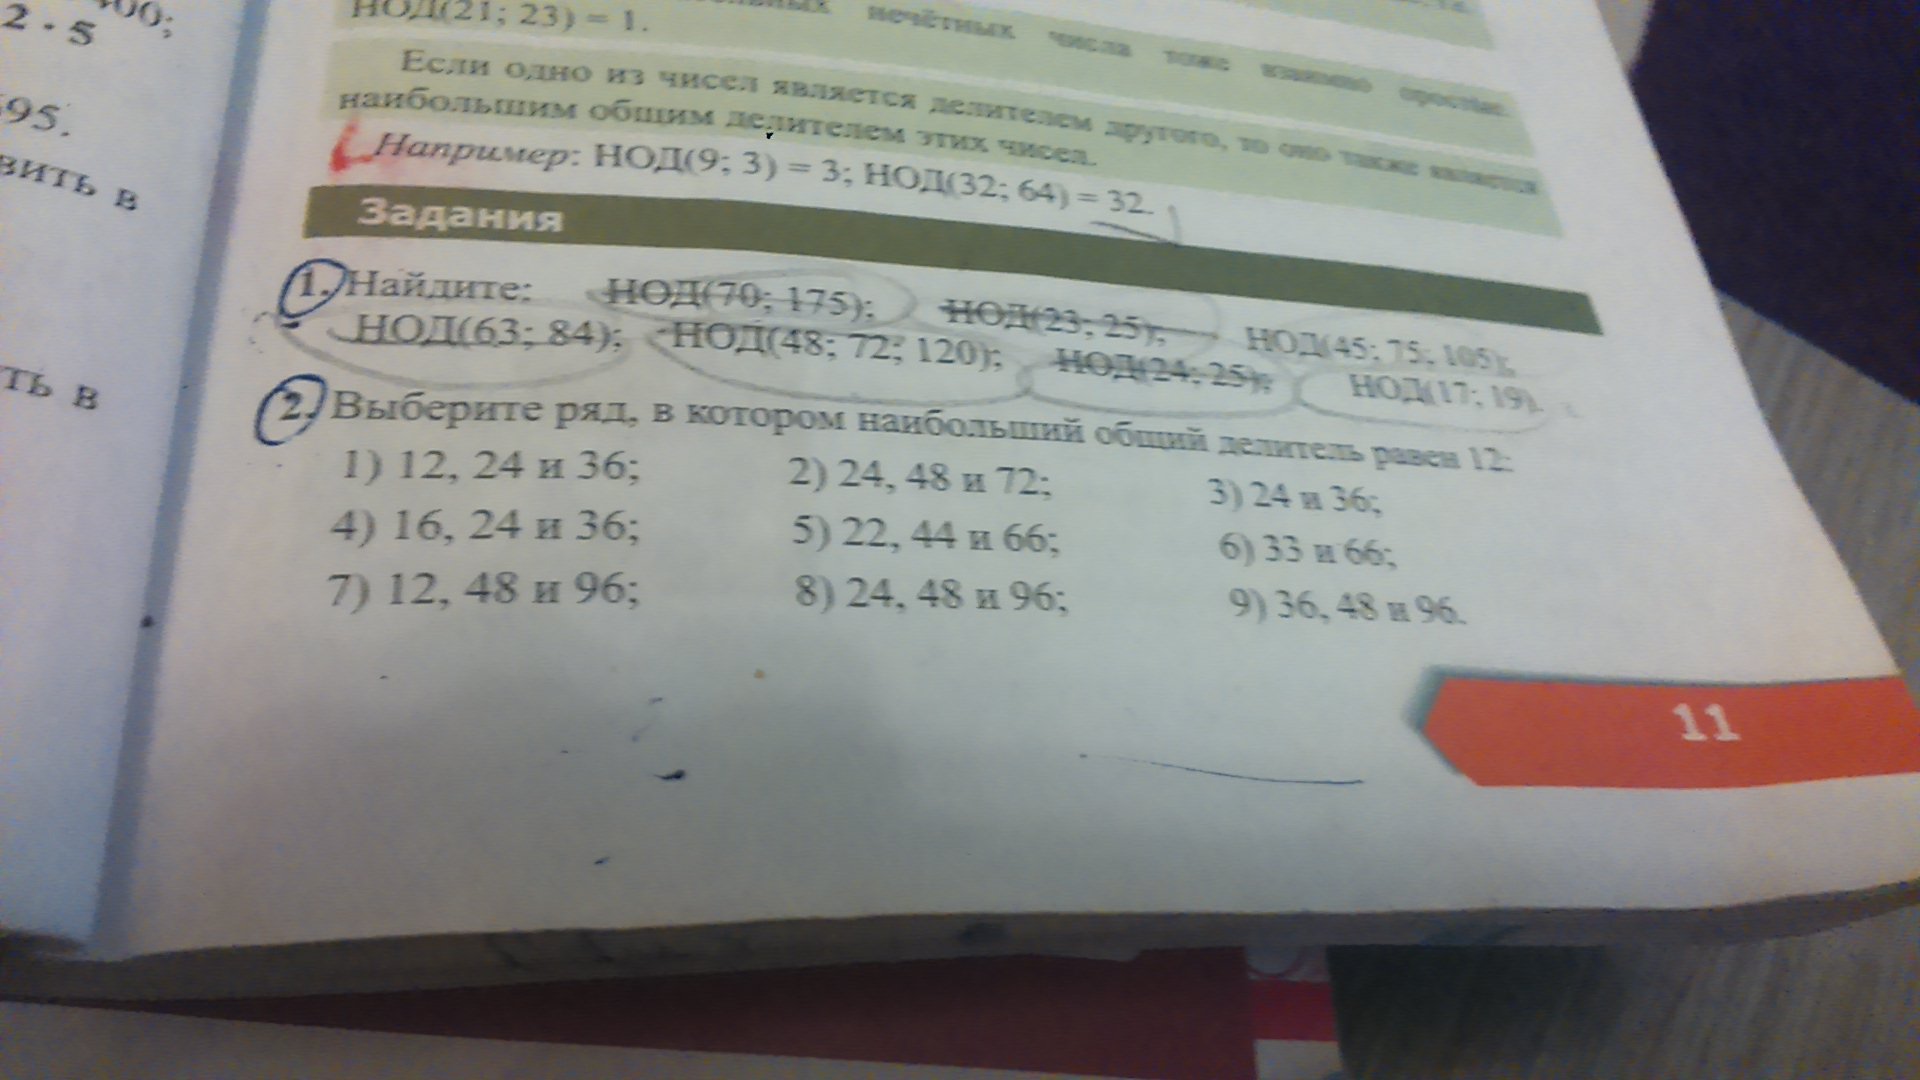 400;
2 · 5
95.
вить в
ть в
НОД(21; 23) = 1.
нечётных числа тоже взаимно простые.
Если одно из чисел является делителем другого, то оно также является
наибольшим общим делителем этих чисел.
Например: НОД(9; 3) = 3; НОД(32; 64) = 32.
Задания
1. Найдите: НОД(70; 175); НОД(23; 25); НОД(45; 75; 105);
НОД(63; 84); НОД(48; 72; 120); НОД(24; 25); НОД(17; 19).
2. Выберите ряд, в котором наибольший общий делитель равен 12:
1) 12, 24 и 36; 2) 24, 48 и 72; 3) 24 и 36;
4) 16, 24 и 36; 5) 22, 44 и 66; 6) 33 и 66;
7) 12, 48 и 96; 8) 24, 48 и 96; 9) 36, 48 и 96.
11